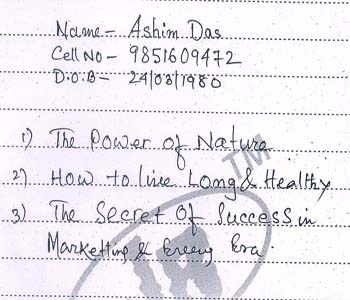 Name - Ashim Das
Cell No - 9851609472
D.O.B - 24/08/1980
1) The Power of Nature
2) How to Live Long & Healthy
3) The Secret Of Success in
Marketting & Era.
TM